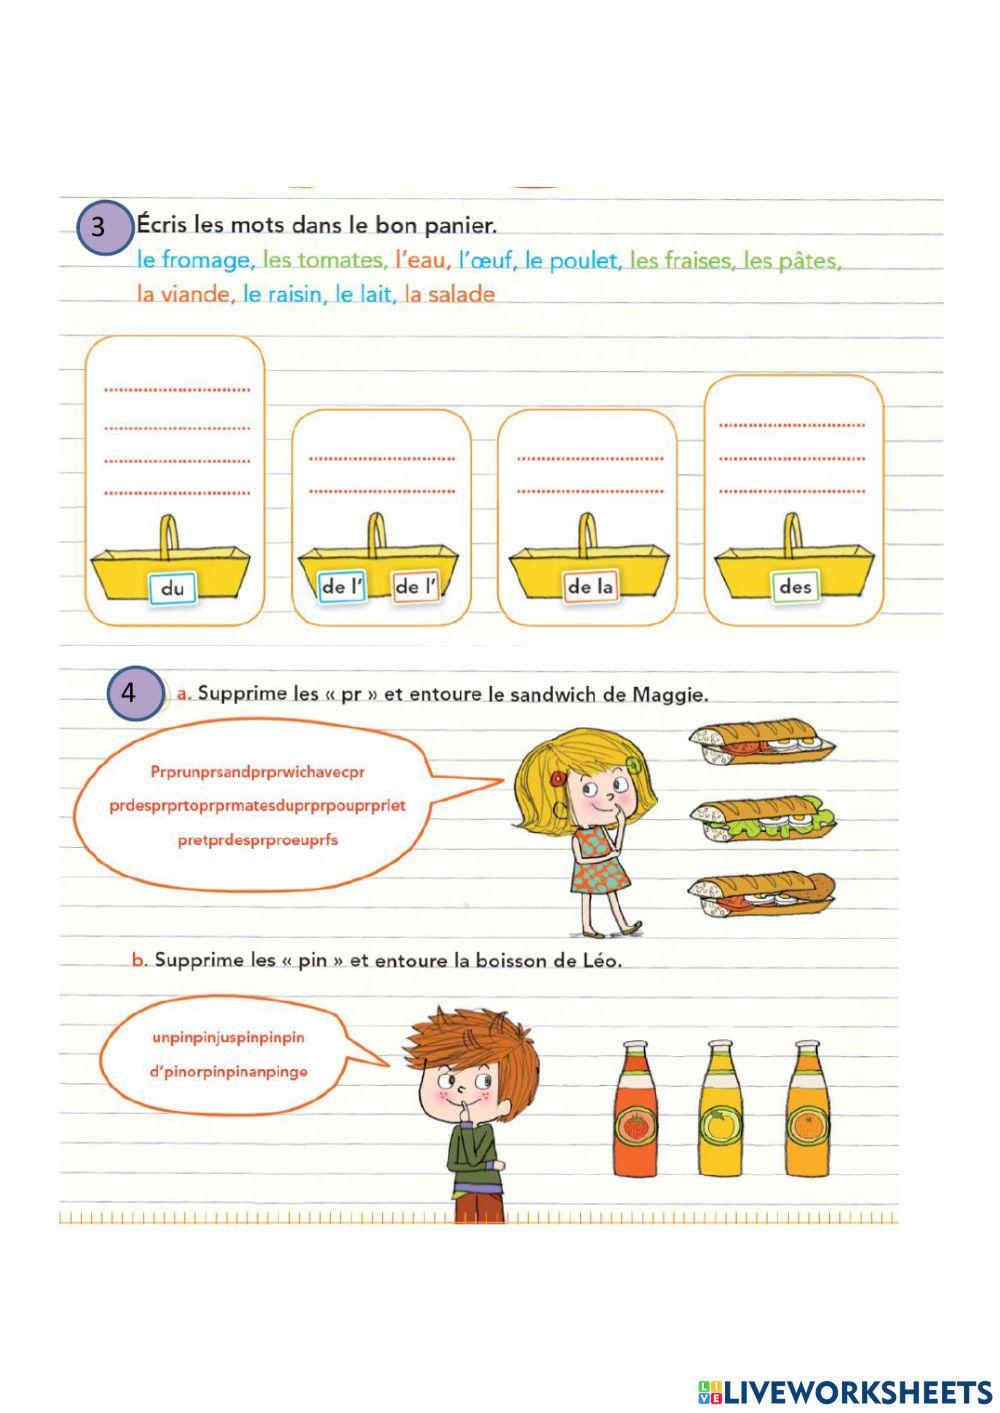 3 Écris les mots dans le bon panier.
le fromage, les tomates, l'eau, l'œuf, le poulet, les fraises, les pâtes,
la viande, le raisin, le lait, la salade
du
de l' de l'
de la
des
4 a. Supprime les « pr » et entoure le sandwich de Maggie.
Prprunprsandprprwichavecpr
prdesprprtoprprmatesduprprpouprprlet
pretprdesprproeuprfs
b. Supprime les « pin » et entoure la boisson de Léo.
unpinpinjuspinpinpin
d'pinorpinpinanpinge
LIVE LIVEWORKSHEETS